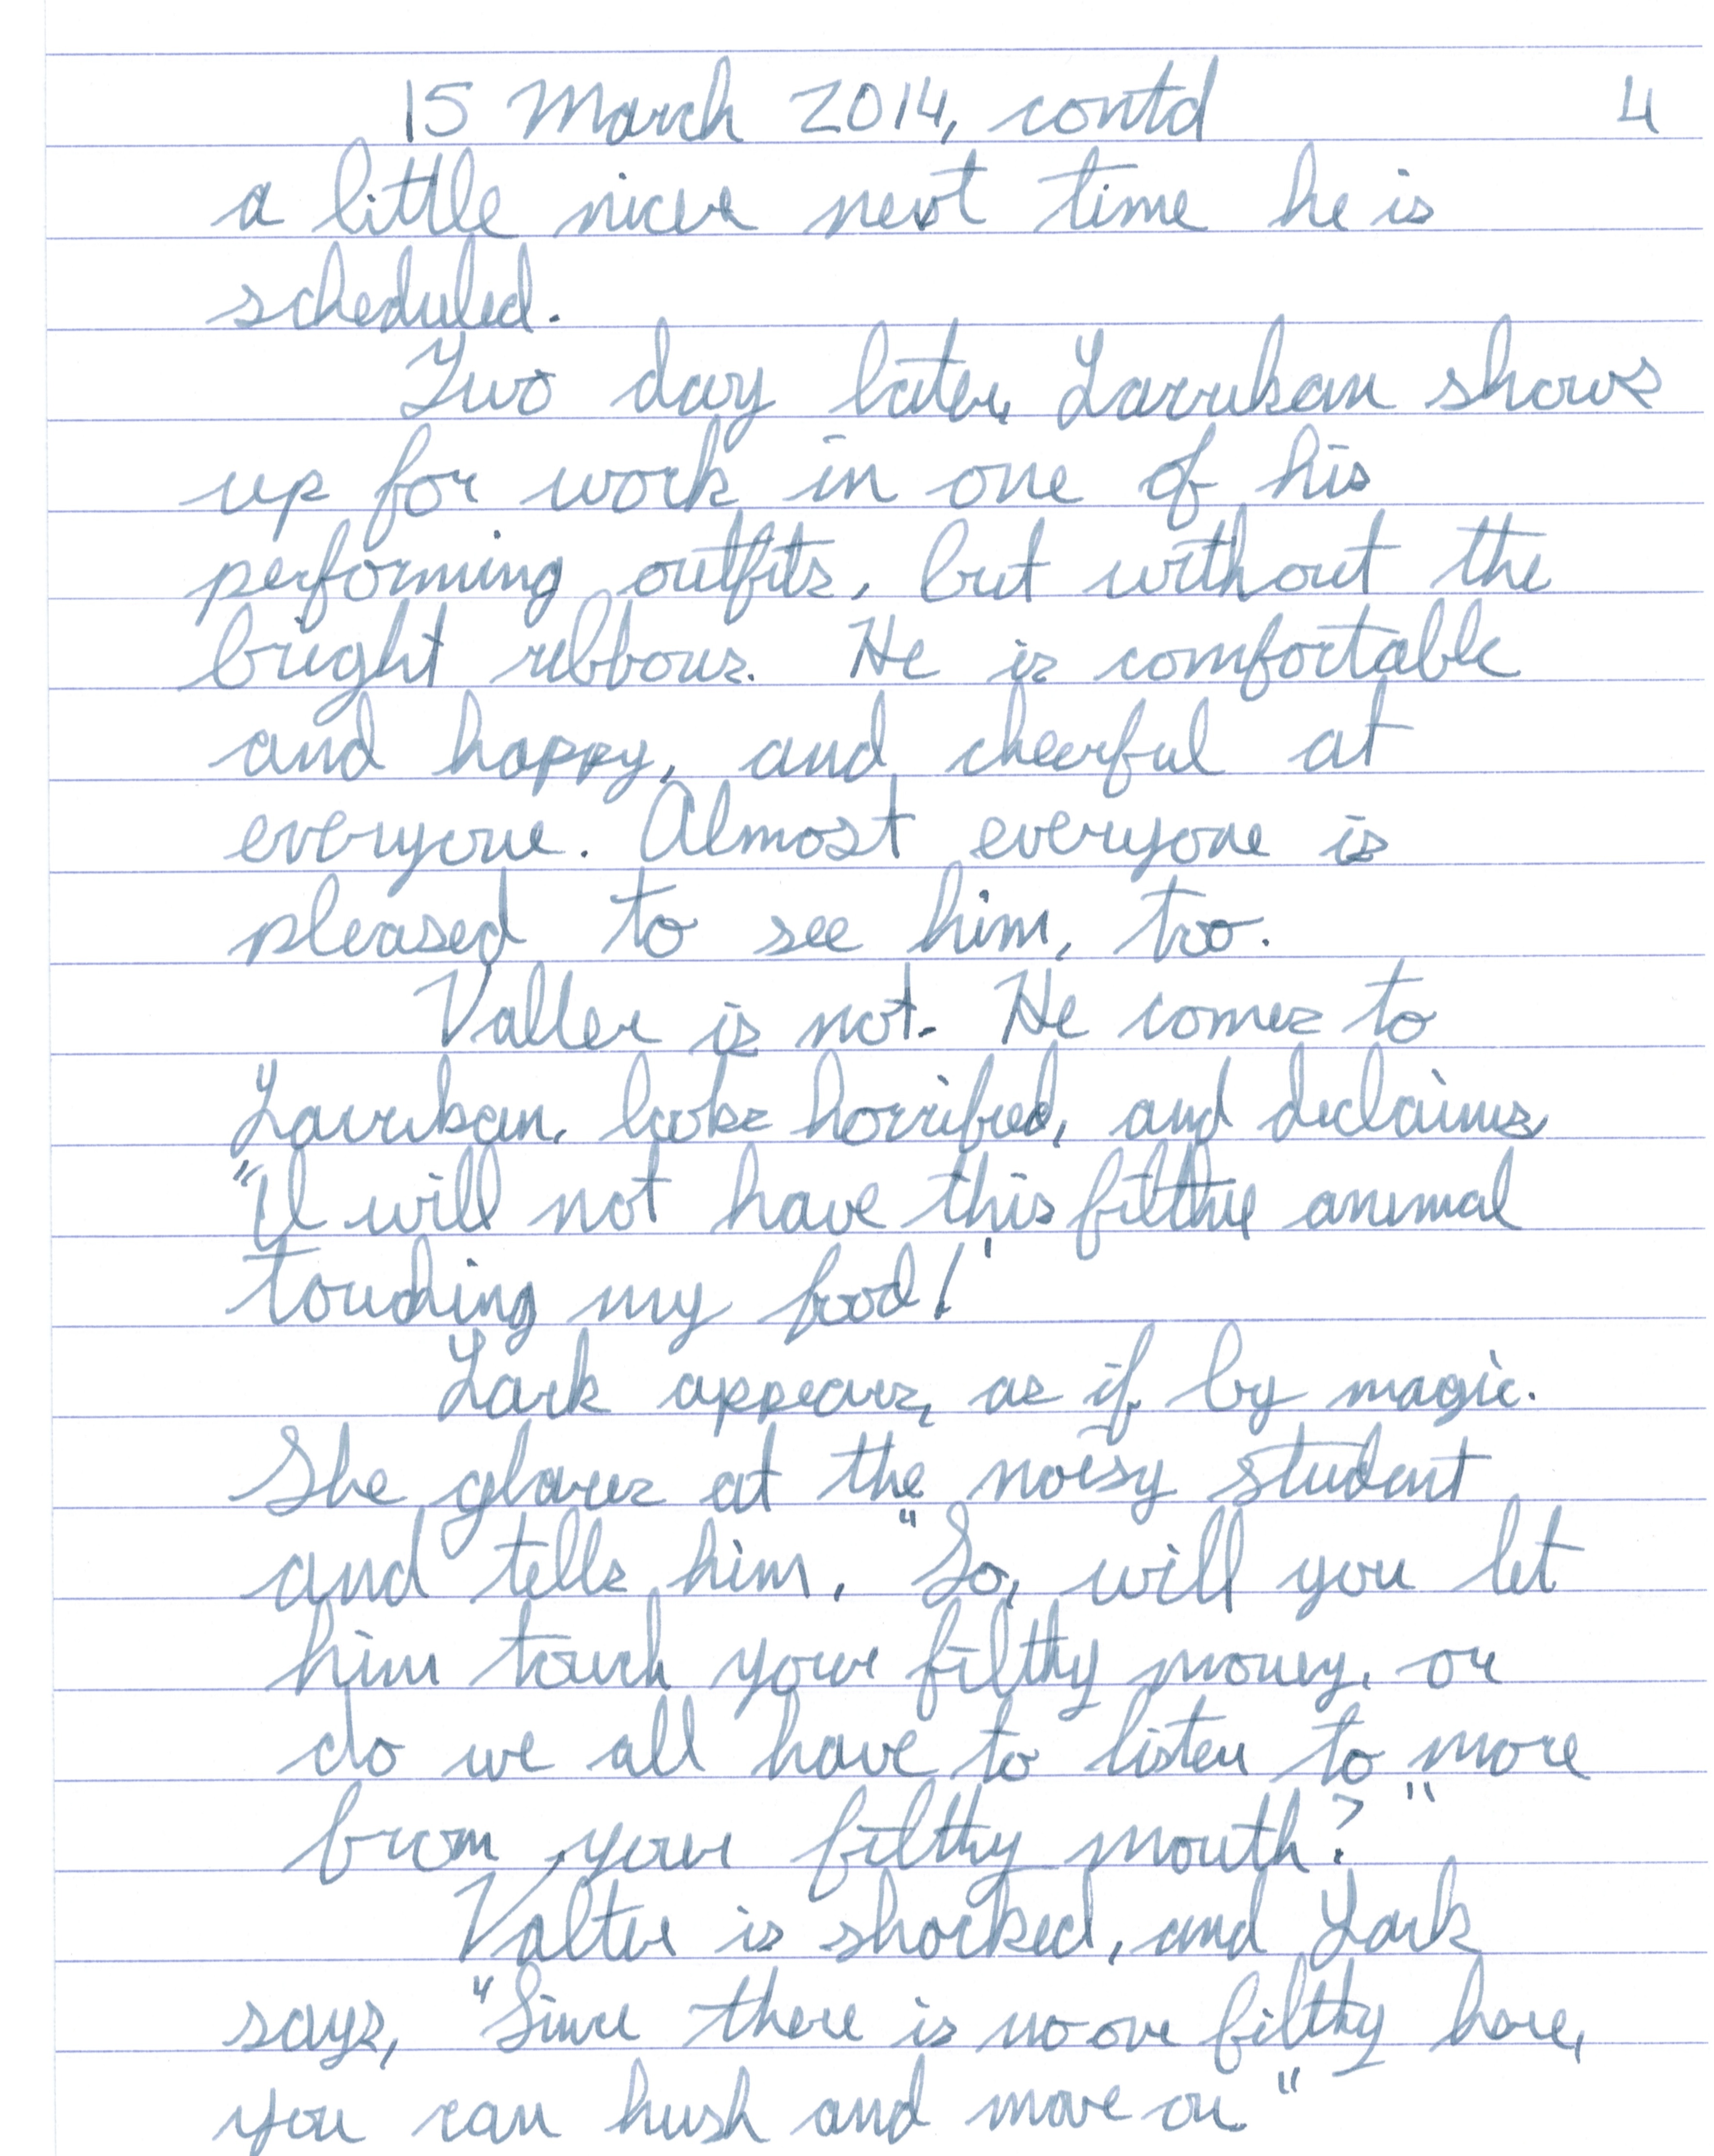 15 March 2014, contd 4
a little nicer next time he is
scheduled.
Two day later, Larrikan shows
up for work in one of his
performing outfits, but without the
bright ribbons. He is comfortable
and happy, and cheerful at
everyone. Almost everyone is
pleased to see him, too.
Valter is not. He comes to
Larrikan, looks horrified, and declaims,
"I will not have this filthy animal
touching my food!'
Lark appears, as if by magic.
She glares at the noisy student
and tells him, "So, will you let
him touch your filthy money, or
do we all have to listen to more
from your filthy mouth?"
Valter is shocked, and Lark
says, "Since there is no one filthy here,
you can hush and move on"